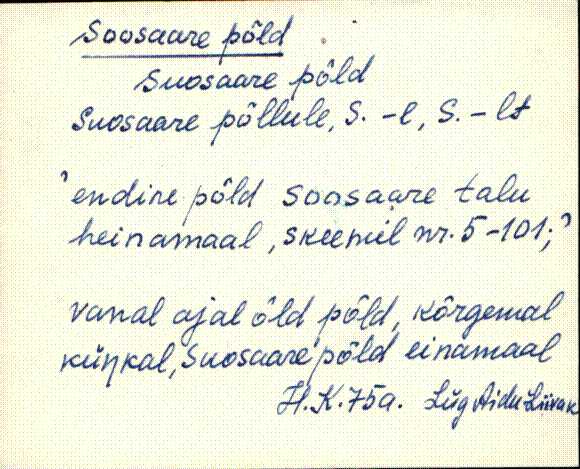 Soosaare põld
Suosaare põld
Suosaare põllule, S. -l, S. - lt
'endine põld Soosaare talu
heinamaal, skeemil nr. 5-101;'
vanal ajal õld põld, kõrgemal
küŋkal, Suosaare põld einamaal
H.K. 75a. Lüg Aidu-Liivak